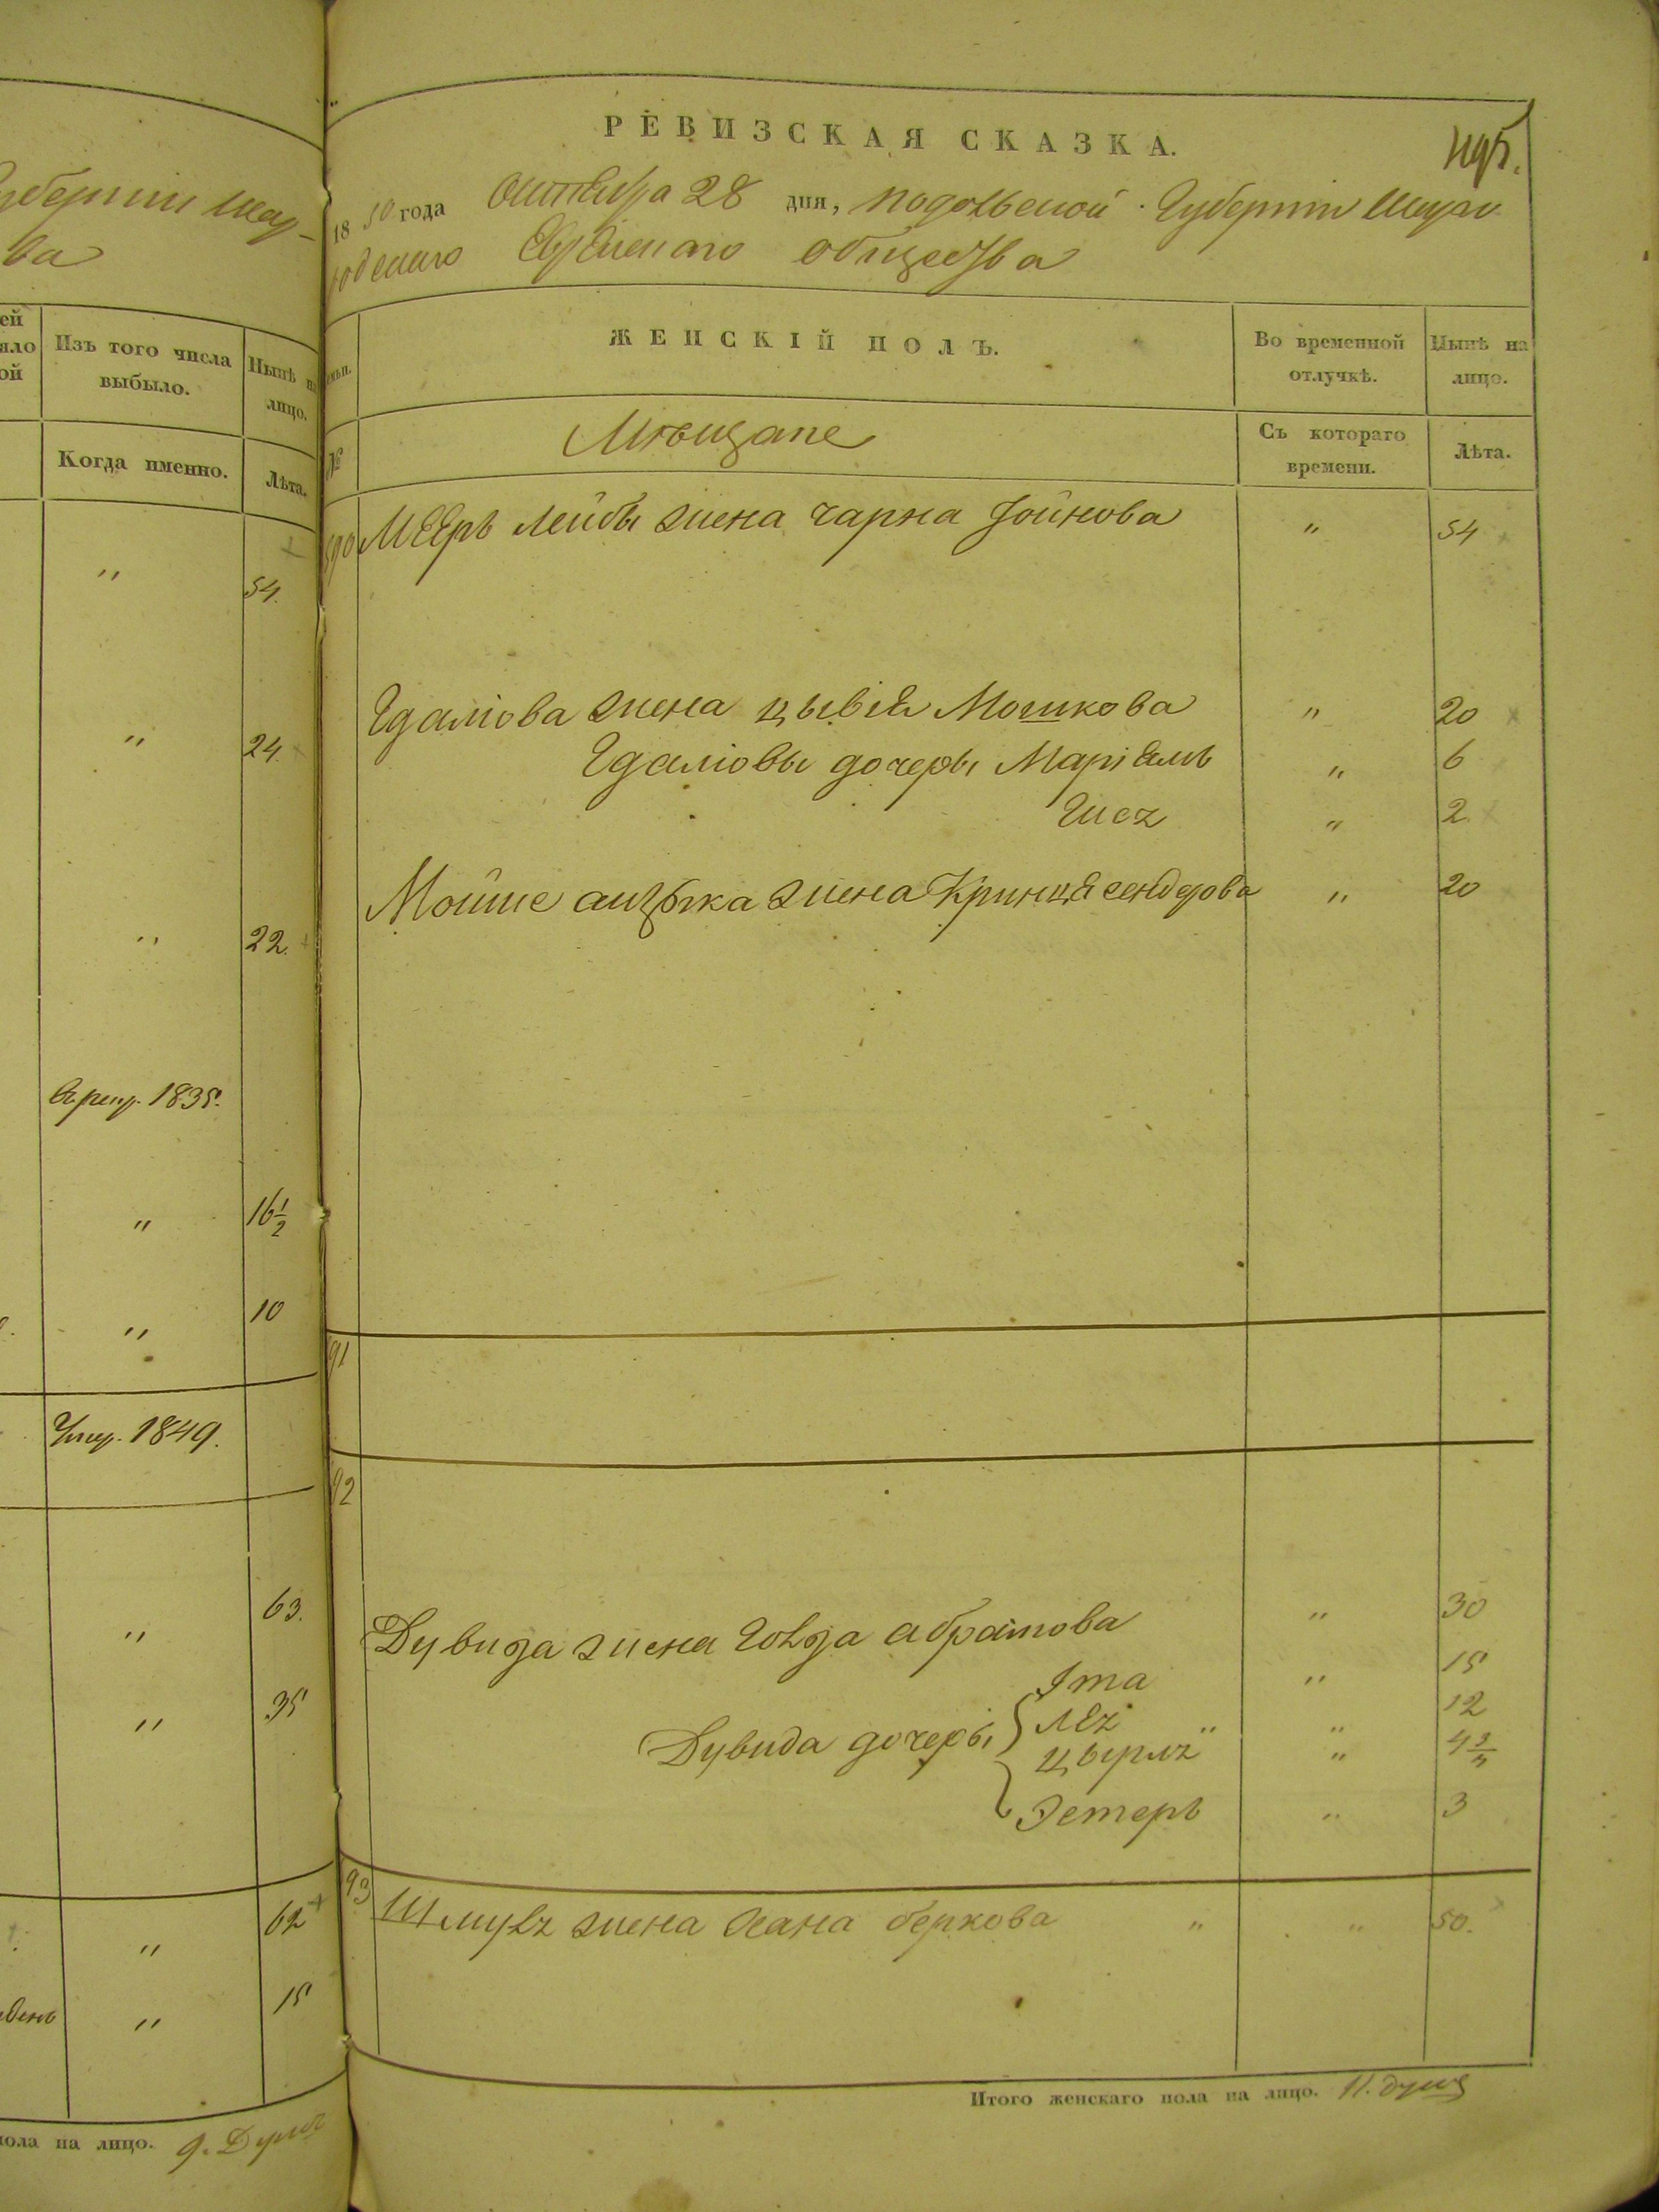 губерніи
ва
ей
Изъ того числа выбыло.
Нынѣ на лицо.
Когда именно.
Лѣта.
" 54.
" 24.
" 22.
1835.
" 16½
" 10
Умер. 1849.
" 63.
" 35
" 62
" 15
пола на лицо. 9. Душъ
РЕВИЗСКАЯ СКАЗКА.
1850 года Октября 28 дня, Подольской Губерніи Шар
Еврейскаго общества
ЖЕНСКІЙ ПОЛЪ.
Во временной отлучкѣ.
Нынѣ на лицо.
№
Мѣщане
Съ котораго времени.
Лѣта.
Мееръ Лейбы жена Чарна Іойнова " 54
Гдаліова жена Цывія Мошкова " 20
Гдаліовы дочеры Маріемъ " 6
" 2
Мойше Айзыка жена Кринця Сендерова " 20
91
92
Дувида жена Голда Абрамова " 30
Ита " 15
Дувида дочеры Лея " 12
Цырля " 4¾
Эстеръ " 3
93 Шмуля жена Хана Беркова " " 50.
Итого женскаго пола на лицо. 11. душъ